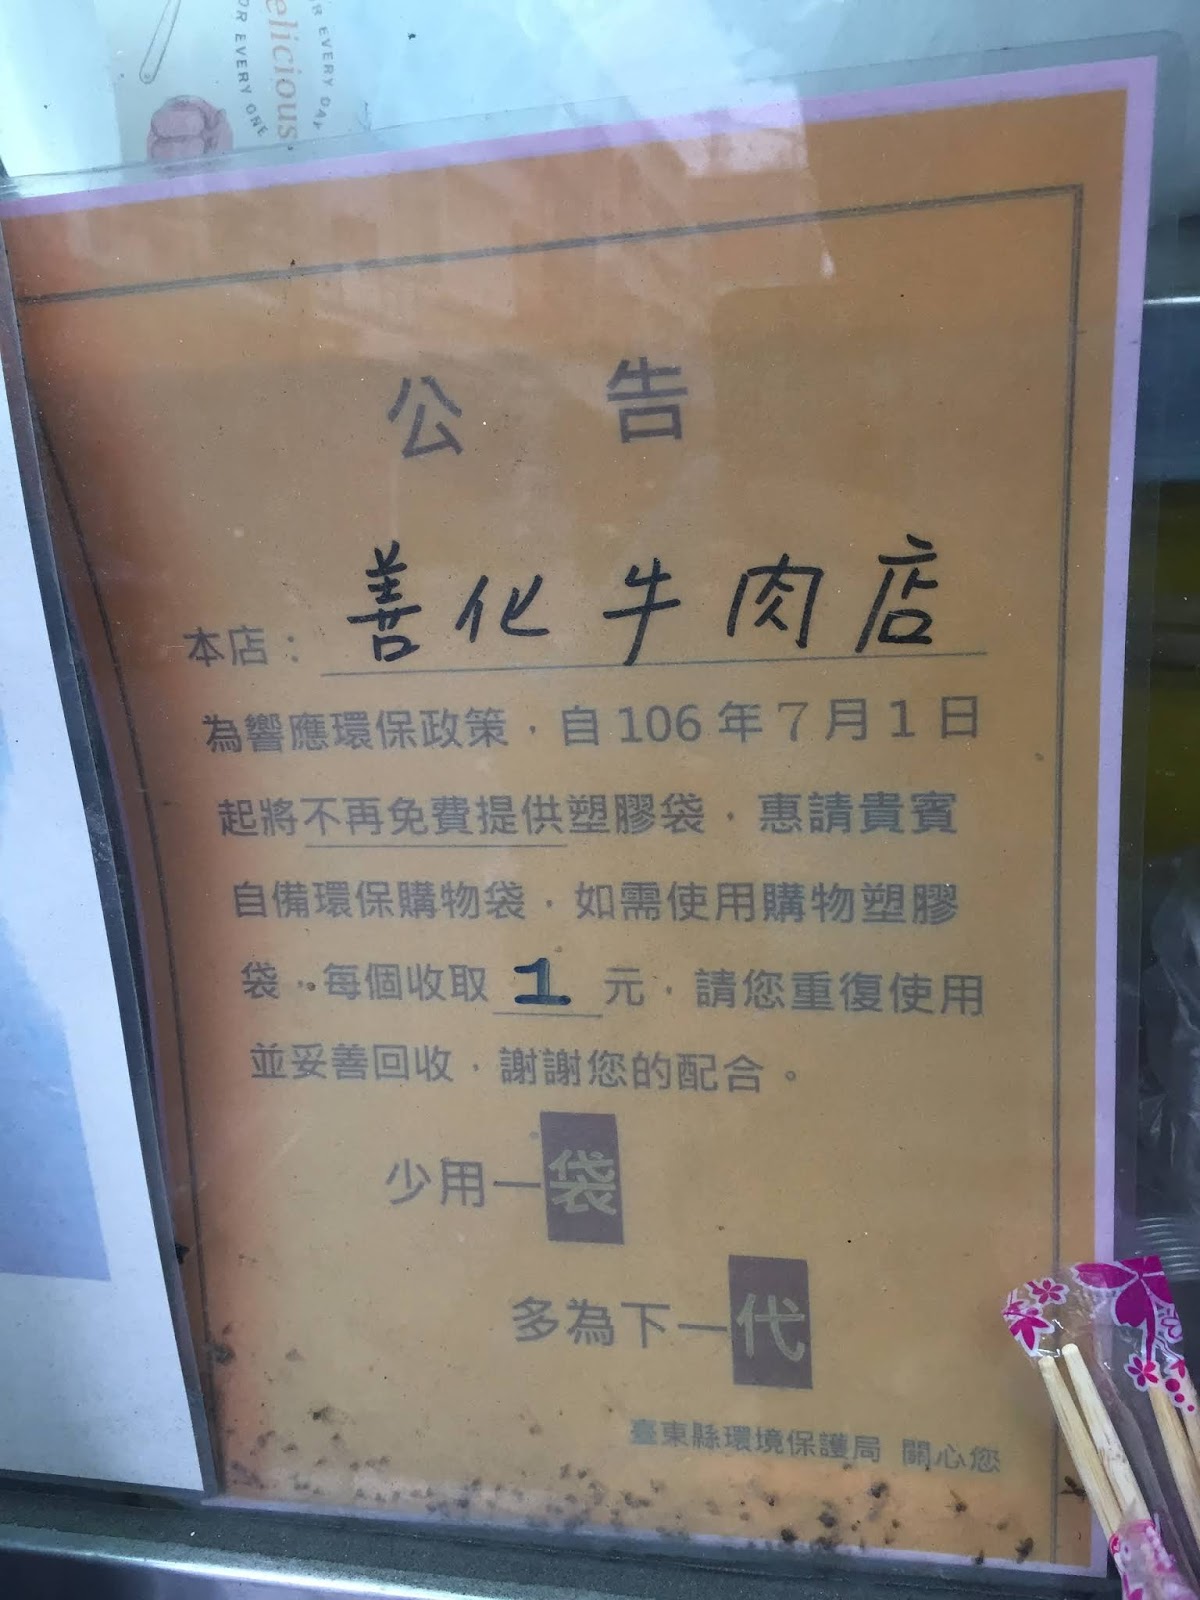 FOR EVERY DAY
elicious
FOR EVERY ONE
公告
本店：善化牛肉店
為響應環保政策，自106年7月1日
起將不再免費提供塑膠袋，惠請貴賓
自備環保購物袋，如需使用購物塑膠
袋，每個收取1元，請您重復使用
並妥善回收，謝謝您的配合。
少用一袋
多為下一代
臺東縣環境保護局 關心您